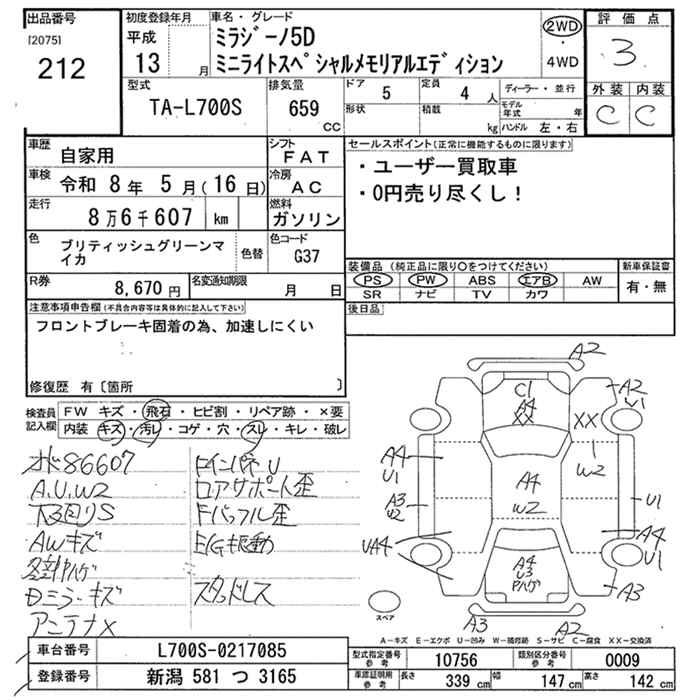 出品番号
[2075]
212
初度登録年月
平成
13 月
車名・グレード
ミラジーノ5D
ミニライトスペシャルメモリアルエディション
2WD
・
4WD
評価点
3
外装 内装
C C
型式
TA-L700S
排気量
659
CC
ドア 5
形状
定員 4 人
積載 kg
ディーラー・並行
モデル年式 年
ハンドル 左・右
車歴
自家用
シフト
FAT
車検 令和 8年 5月(16日)
冷房
AC
走行
8万6千607 km
燃料
ガソリン
色
ブリティッシュグリーンマイカ
色替
色コード
G37
R券
8,670円
名変通知期限
月 日
セールスポイント(正常に機能するものに限ります)
・ユーザー買取車
・0円売り尽くし!
装備品 (純正品に限り〇をつけてください)
PS PW ABS エアB AW
SR ナビ TV カワ
新車保証書
有・無
後日品
注意事項申告欄(不具合内容等は具体的に記入して下さい)
フロントブレーキ固着の為、加速しにくい
修復歴 有〔箇所 〕
検査員記入欄
FW キズ・飛石・ヒビ割・リペア跡・×要
内装 キズ・汚レ・コゲ・穴・スレ・キレ・破レ
86607
A.U.W2
下回りS
AWキズ
Dミラーキズ
アンテナX
ロアサポート歪
Fバッフル歪
E/G振動
スタッドレス
A2
C1
A4
XX
A2
U1
XX
W2
A4
U1
A4
W2
A3
U2
U1
UA4
A4
U1
A4
U3
Pハゲ
A3
A3
A2
スペア
A-キズ E-エクボ U-凹み W-補修跡 S-サビ C-腐食 XX-交換済
車台番号
L700S-0217085
登録番号
新潟 581 つ 3165
型式指定番号
参考
10756
類別区分番号
参考
0009
車庫証明用
参考
長さ 339 cm
幅 147 cm
高さ 142 cm